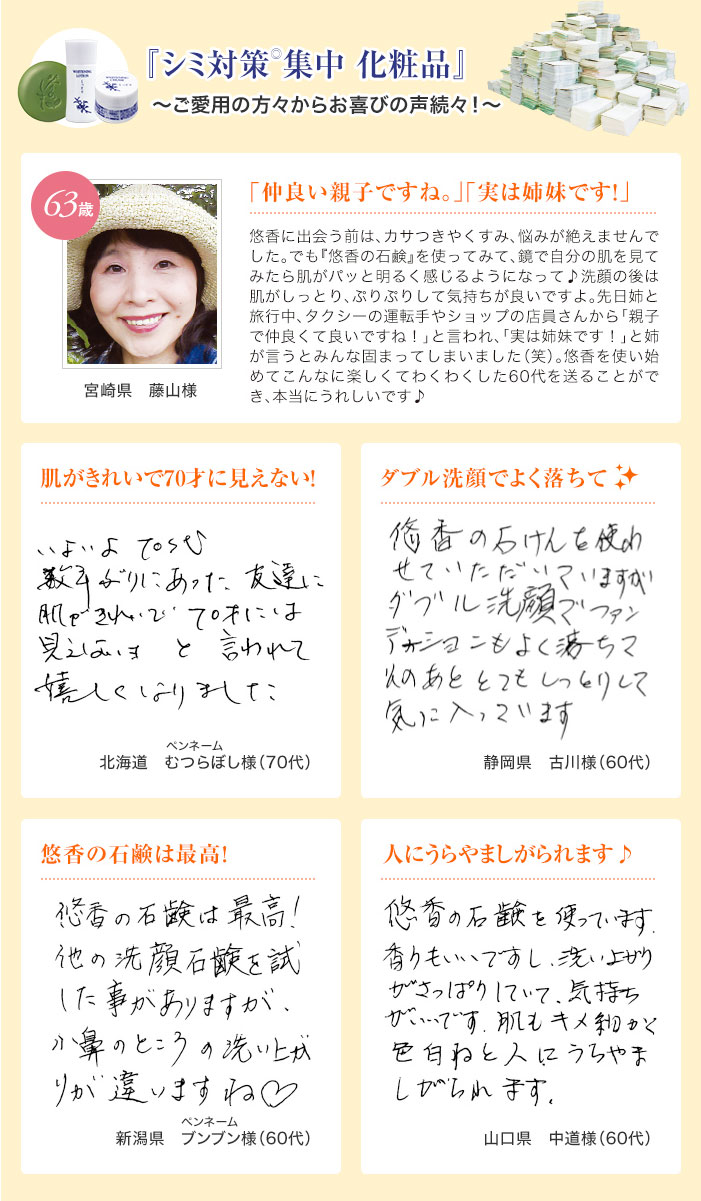 『シミ対策◎集中 化粧品』
〜ご愛用の方々からお喜びの声続々！〜
63歳
「仲良い親子ですね。」「実は姉妹です！」
悠香に出会う前は、カサつきやくすみ、悩みが絶えませんで
した。でも『悠香の石鹸』を使ってみて、鏡で自分の肌を見て
みたら肌がパッと明るく感じるようになって♪洗顔の後は
肌がしっとり、ぷりぷりして気持ちが良いですよ。先日姉と
旅行中、タクシーの運転手やショップの店員さんから「親子
で仲良くて良いですね！」と言われ、「実は姉妹です！」と姉
が言うとみんな固まってしまいました（笑）。悠香を使い始
めてこんなに楽しくてわくわくした60代を送ることがで
き、本当にうれしいです♪
宮崎県　藤山様
肌がきれいで70才に見えない！
いよいよ 70才
数年ぶりにあった 友達に
肌がきれいで 70才には
見えないネ と 言われて
嬉しくなりました
ペンネーム
北海道　むつらぼし様（70代）
ダブル洗顔でよく落ちて
悠香の石けんを使わ
せていただいていますが
ダブル洗顔でファン
デーションもよく落ちて
そのあと とてもしっとりして
気に入っています
静岡県　古川様（60代）
悠香の石鹸は最高！
悠香の石鹸は最高！
他の洗顔石鹸を試
した事がありますが、
小鼻のところの洗い上が
りが違いますね♡
ペンネーム
新潟県　ブンブン様（60代）
人にうらやましがられます♪
悠香の石鹸を使っています。
香りもいいですし、洗い上がり
がさっぱりしていて、気持ち
がいいです。肌もキメ細かく
色白ねと人にうらやま
しがられます。
山口県　中道様（60代）